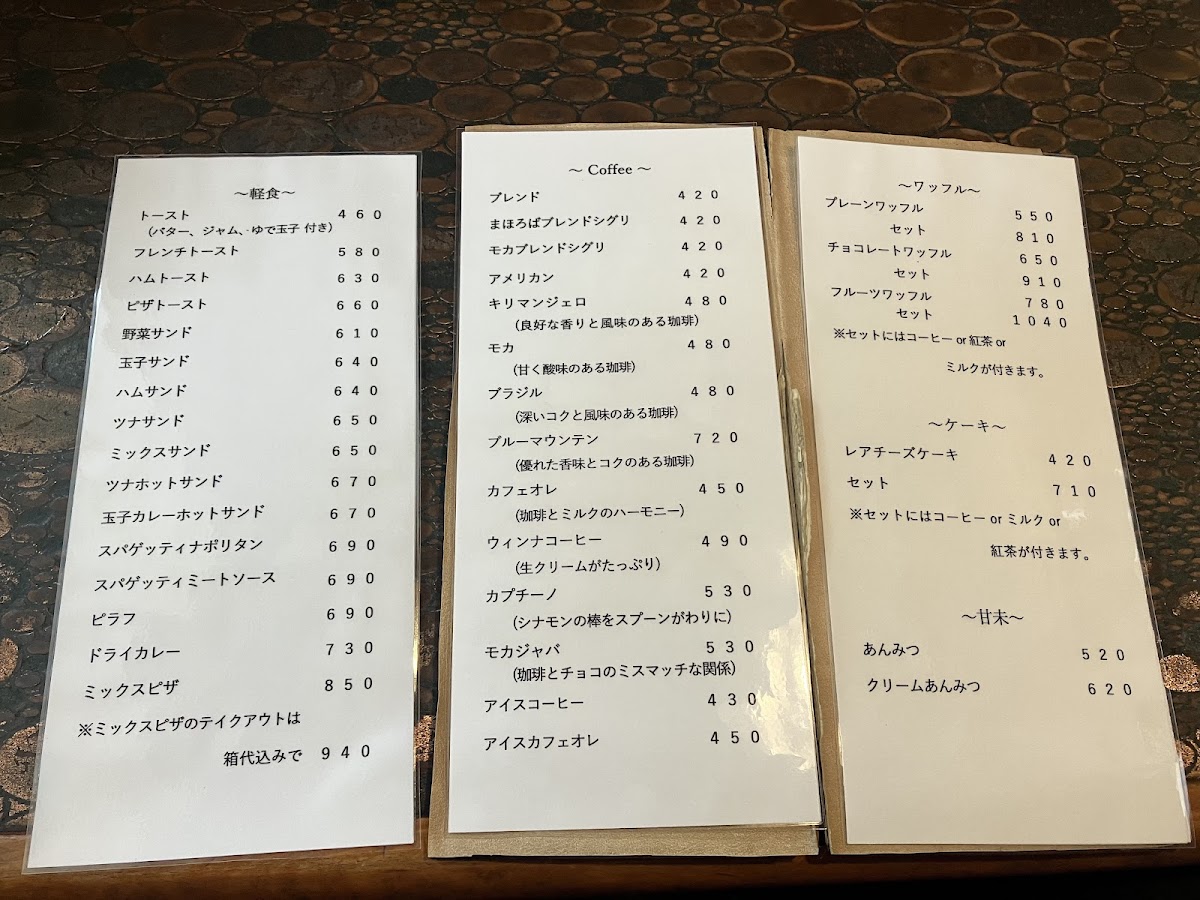 ～軽食～
トースト 460
（バター、ジャム、ゆで玉子 付き）
フレンチトースト 580
ハムトースト 630
ピザトースト 660
野菜サンド 610
玉子サンド 640
ハムサンド 640
ツナサンド 650
ミックスサンド 650
ツナホットサンド 670
玉子カレーホットサンド 670
スパゲッティナポリタン 690
スパゲッティミートソース 690
ピラフ 690
ドライカレー 730
ミックスピザ 850
※ミックスピザのテイクアウトは
箱代込みで 940
～ Coffee ～
ブレンド 420
まほろばブレンドシグリ 420
モカブレンドシグリ 420
アメリカン 420
キリマンジェロ 480
（良好な香りと風味のある珈琲）
モカ 480
（甘く酸味のある珈琲）
ブラジル 480
（深いコクと風味のある珈琲）
ブルーマウンテン 720
（優れた香味とコクのある珈琲）
カフェオレ 450
（珈琲とミルクのハーモニー）
ウィンナコーヒー 490
（生クリームがたっぷり）
カプチーノ 530
（シナモンの棒をスプーンがわりに）
モカジャバ 530
（珈琲とチョコのミスマッチな関係）
アイスコーヒー 430
アイスカフェオレ 450
～ワッフル～
プレーンワッフル 550
セット 810
チョコレートワッフル 650
セット 910
フルーツワッフル 780
セット 1040
※セットにはコーヒー or 紅茶 or
ミルクが付きます。
～ケーキ～
レアチーズケーキ 420
セット 710
※セットにはコーヒー or ミルク or
紅茶が付きます。
～甘未～
あんみつ 520
クリームあんみつ 620